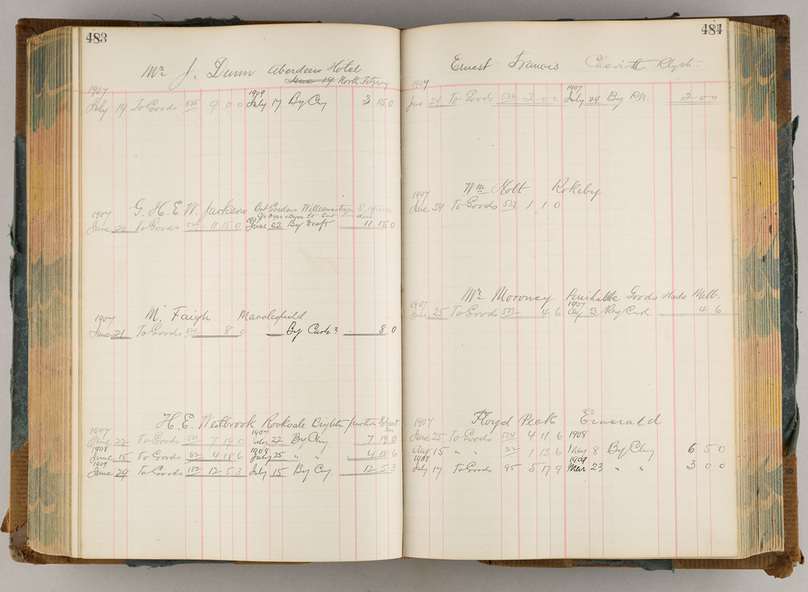 483
Mr J. Dunn Aberdeen Hotel
North Fitzroy
1907 1909
July 19 To Goods 9 0 0 July 17 By Chq 3 15 0
G. H. E. W. Jackson
1907
June 22 To Goods 11 15 0 June 22 By Draft 11 15 0
M. Faigh Macclesfield
1907
June 21 To Goods 8 0 By Cash 8 0
H. E. Westbrook Rockvale Brighton Junction
1907 1907
June 22 To Goods 7 19 0 22 By Chq 7 19 0
1908 1908
June 15 To Goods 62 4 18 6 July 25 " " 4 18 6
1909
June 29 To Goods 182 12 5 3 July 15 By Chq 12 5 3
484
Ernest Francis
1907 1907
June 24 To Goods 2 0 0 July 24 By 2 0 0
Wm Holt Rokeby
1907
June 24 To Goods 523 1 1 0
Mr Moroney Perishable Goods Melb.
1907 1907
June 25 To Goods 523 4 6 3 By Cash 4 6
Floyd Peak Emerald
1907
June 25 To Goods 524 4 11 6 1908
15 " " 22 1 13 6 May 8 By Chq 6 5 0
1908 1909
July 17 To Goods 95 5 17 9 Mar 23 " " 3 0 0